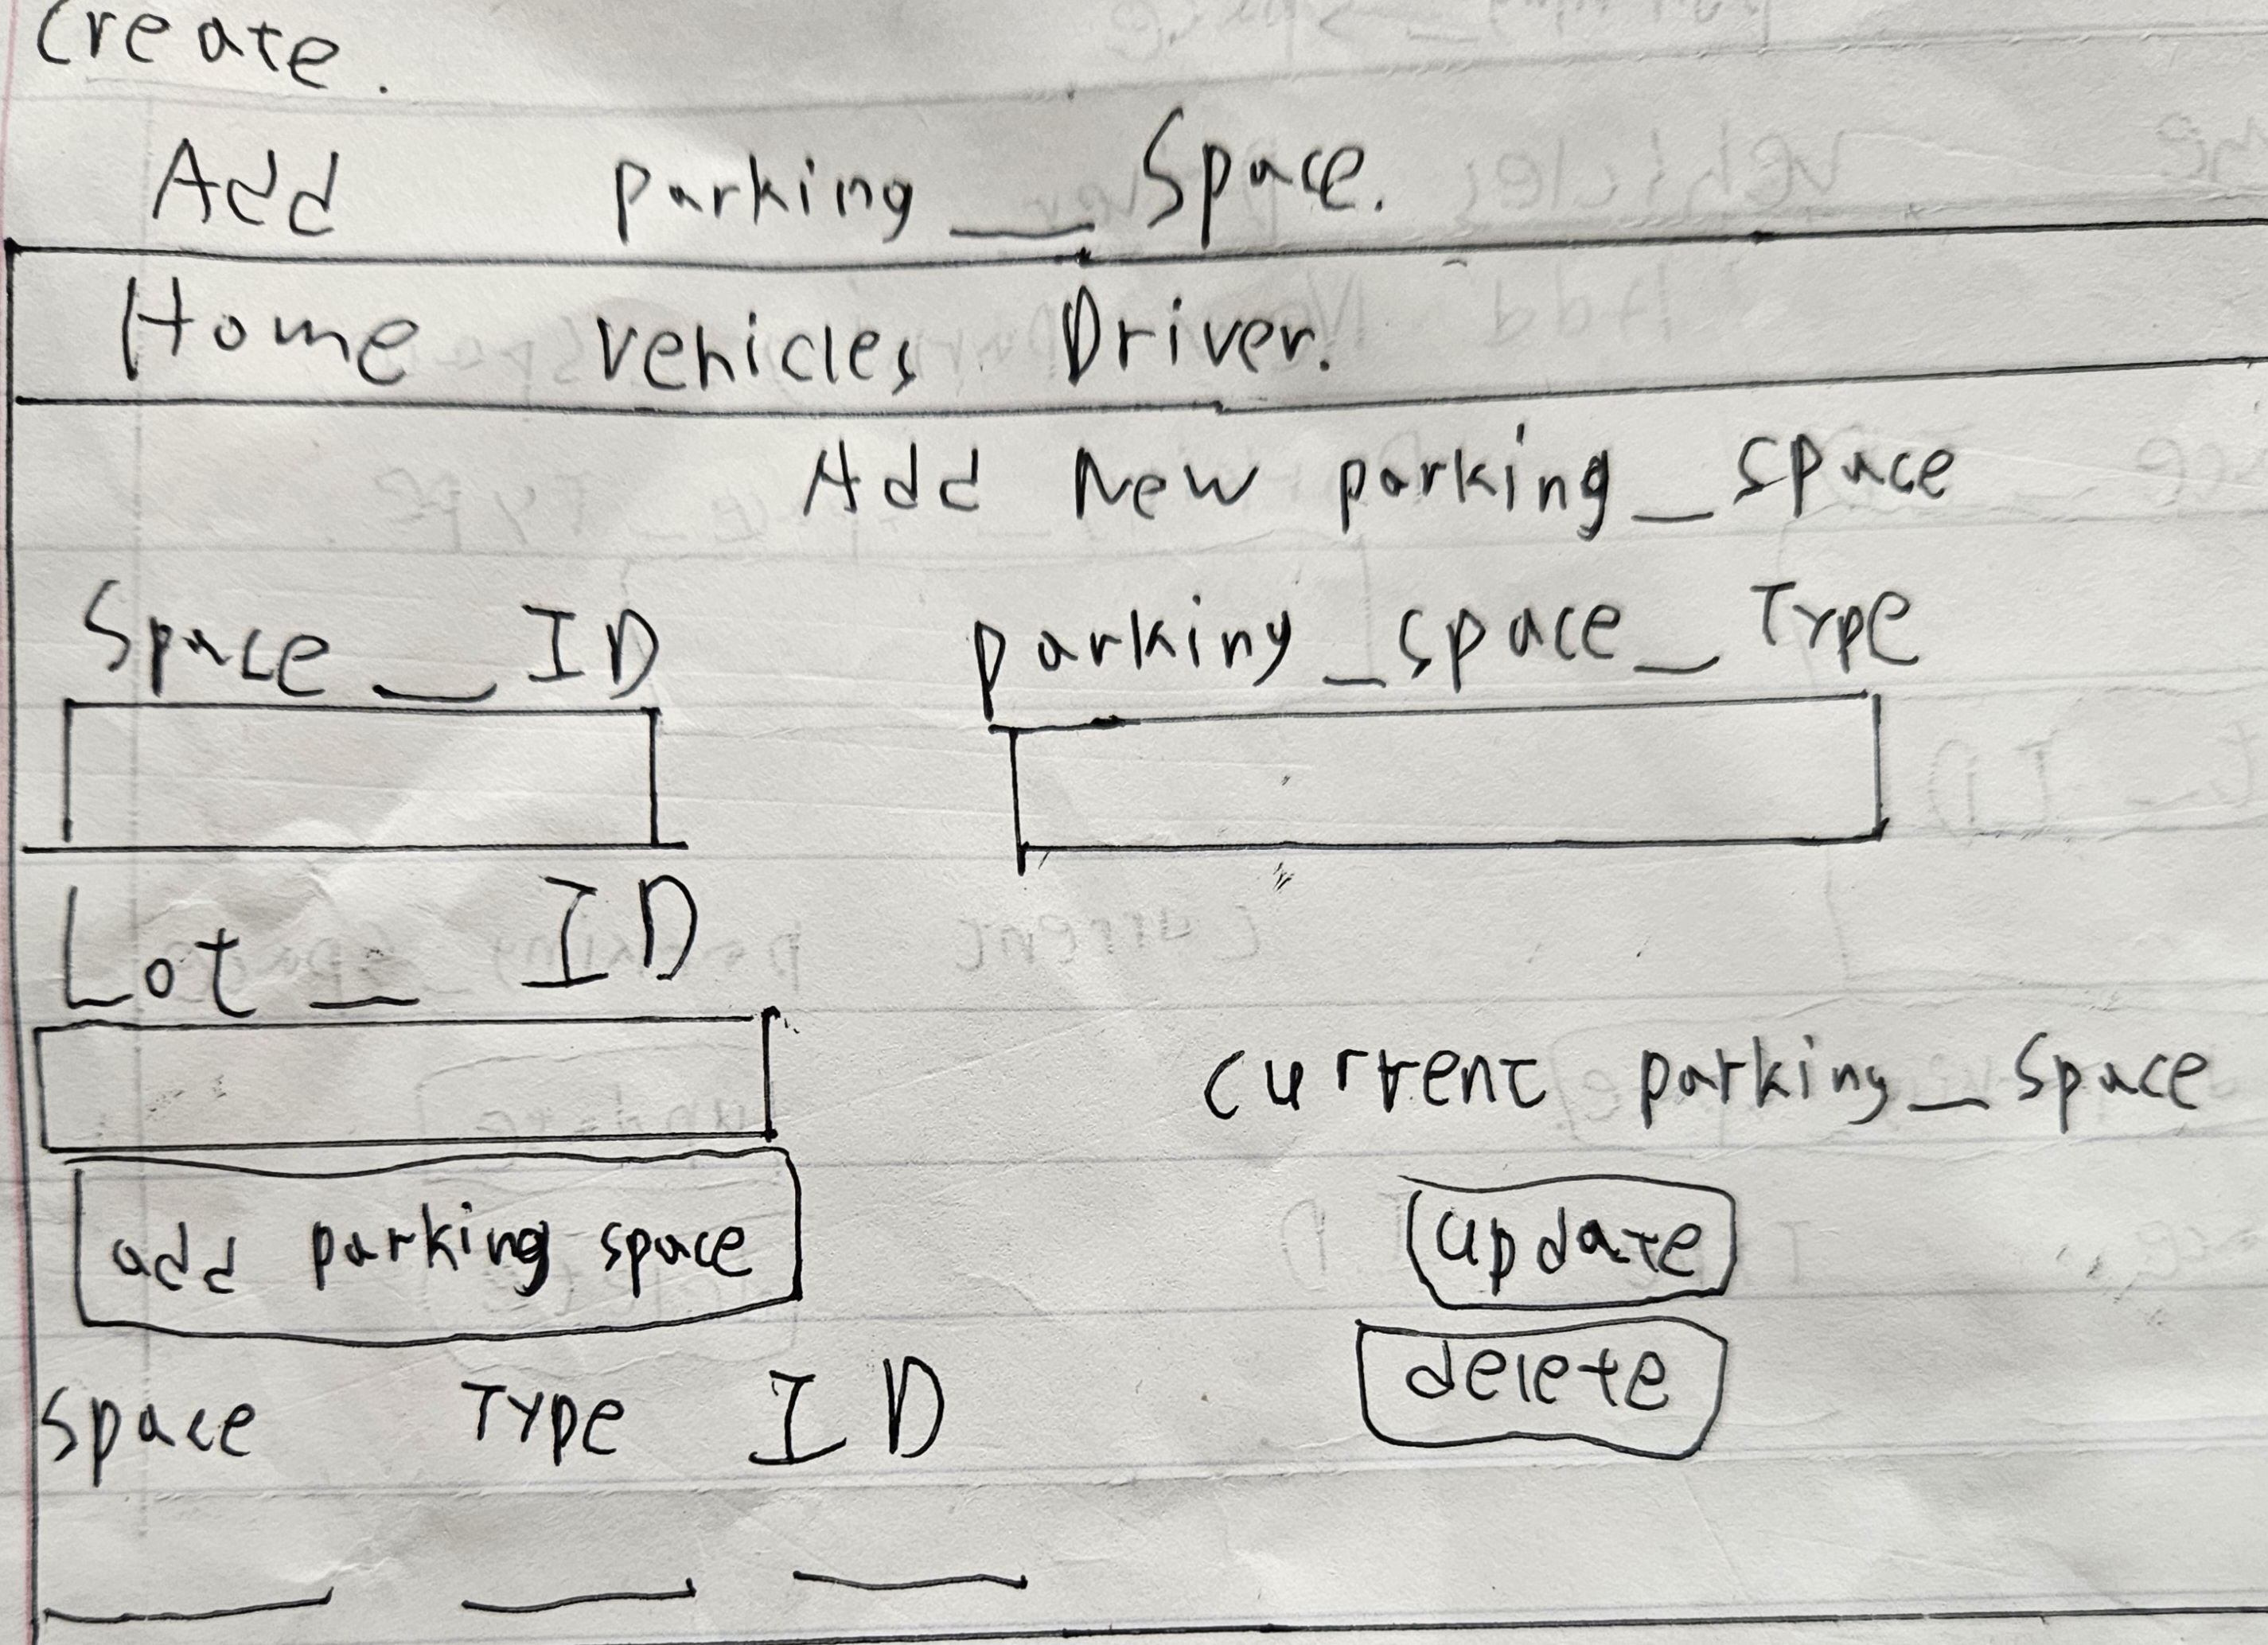 Create.
Add parking_Space.
Home vehicles Driver.
Add New parking_space
Space_ID parking_space_Type
Lot_ID
current parking_Space
add parking space update
delete
Space Type ID